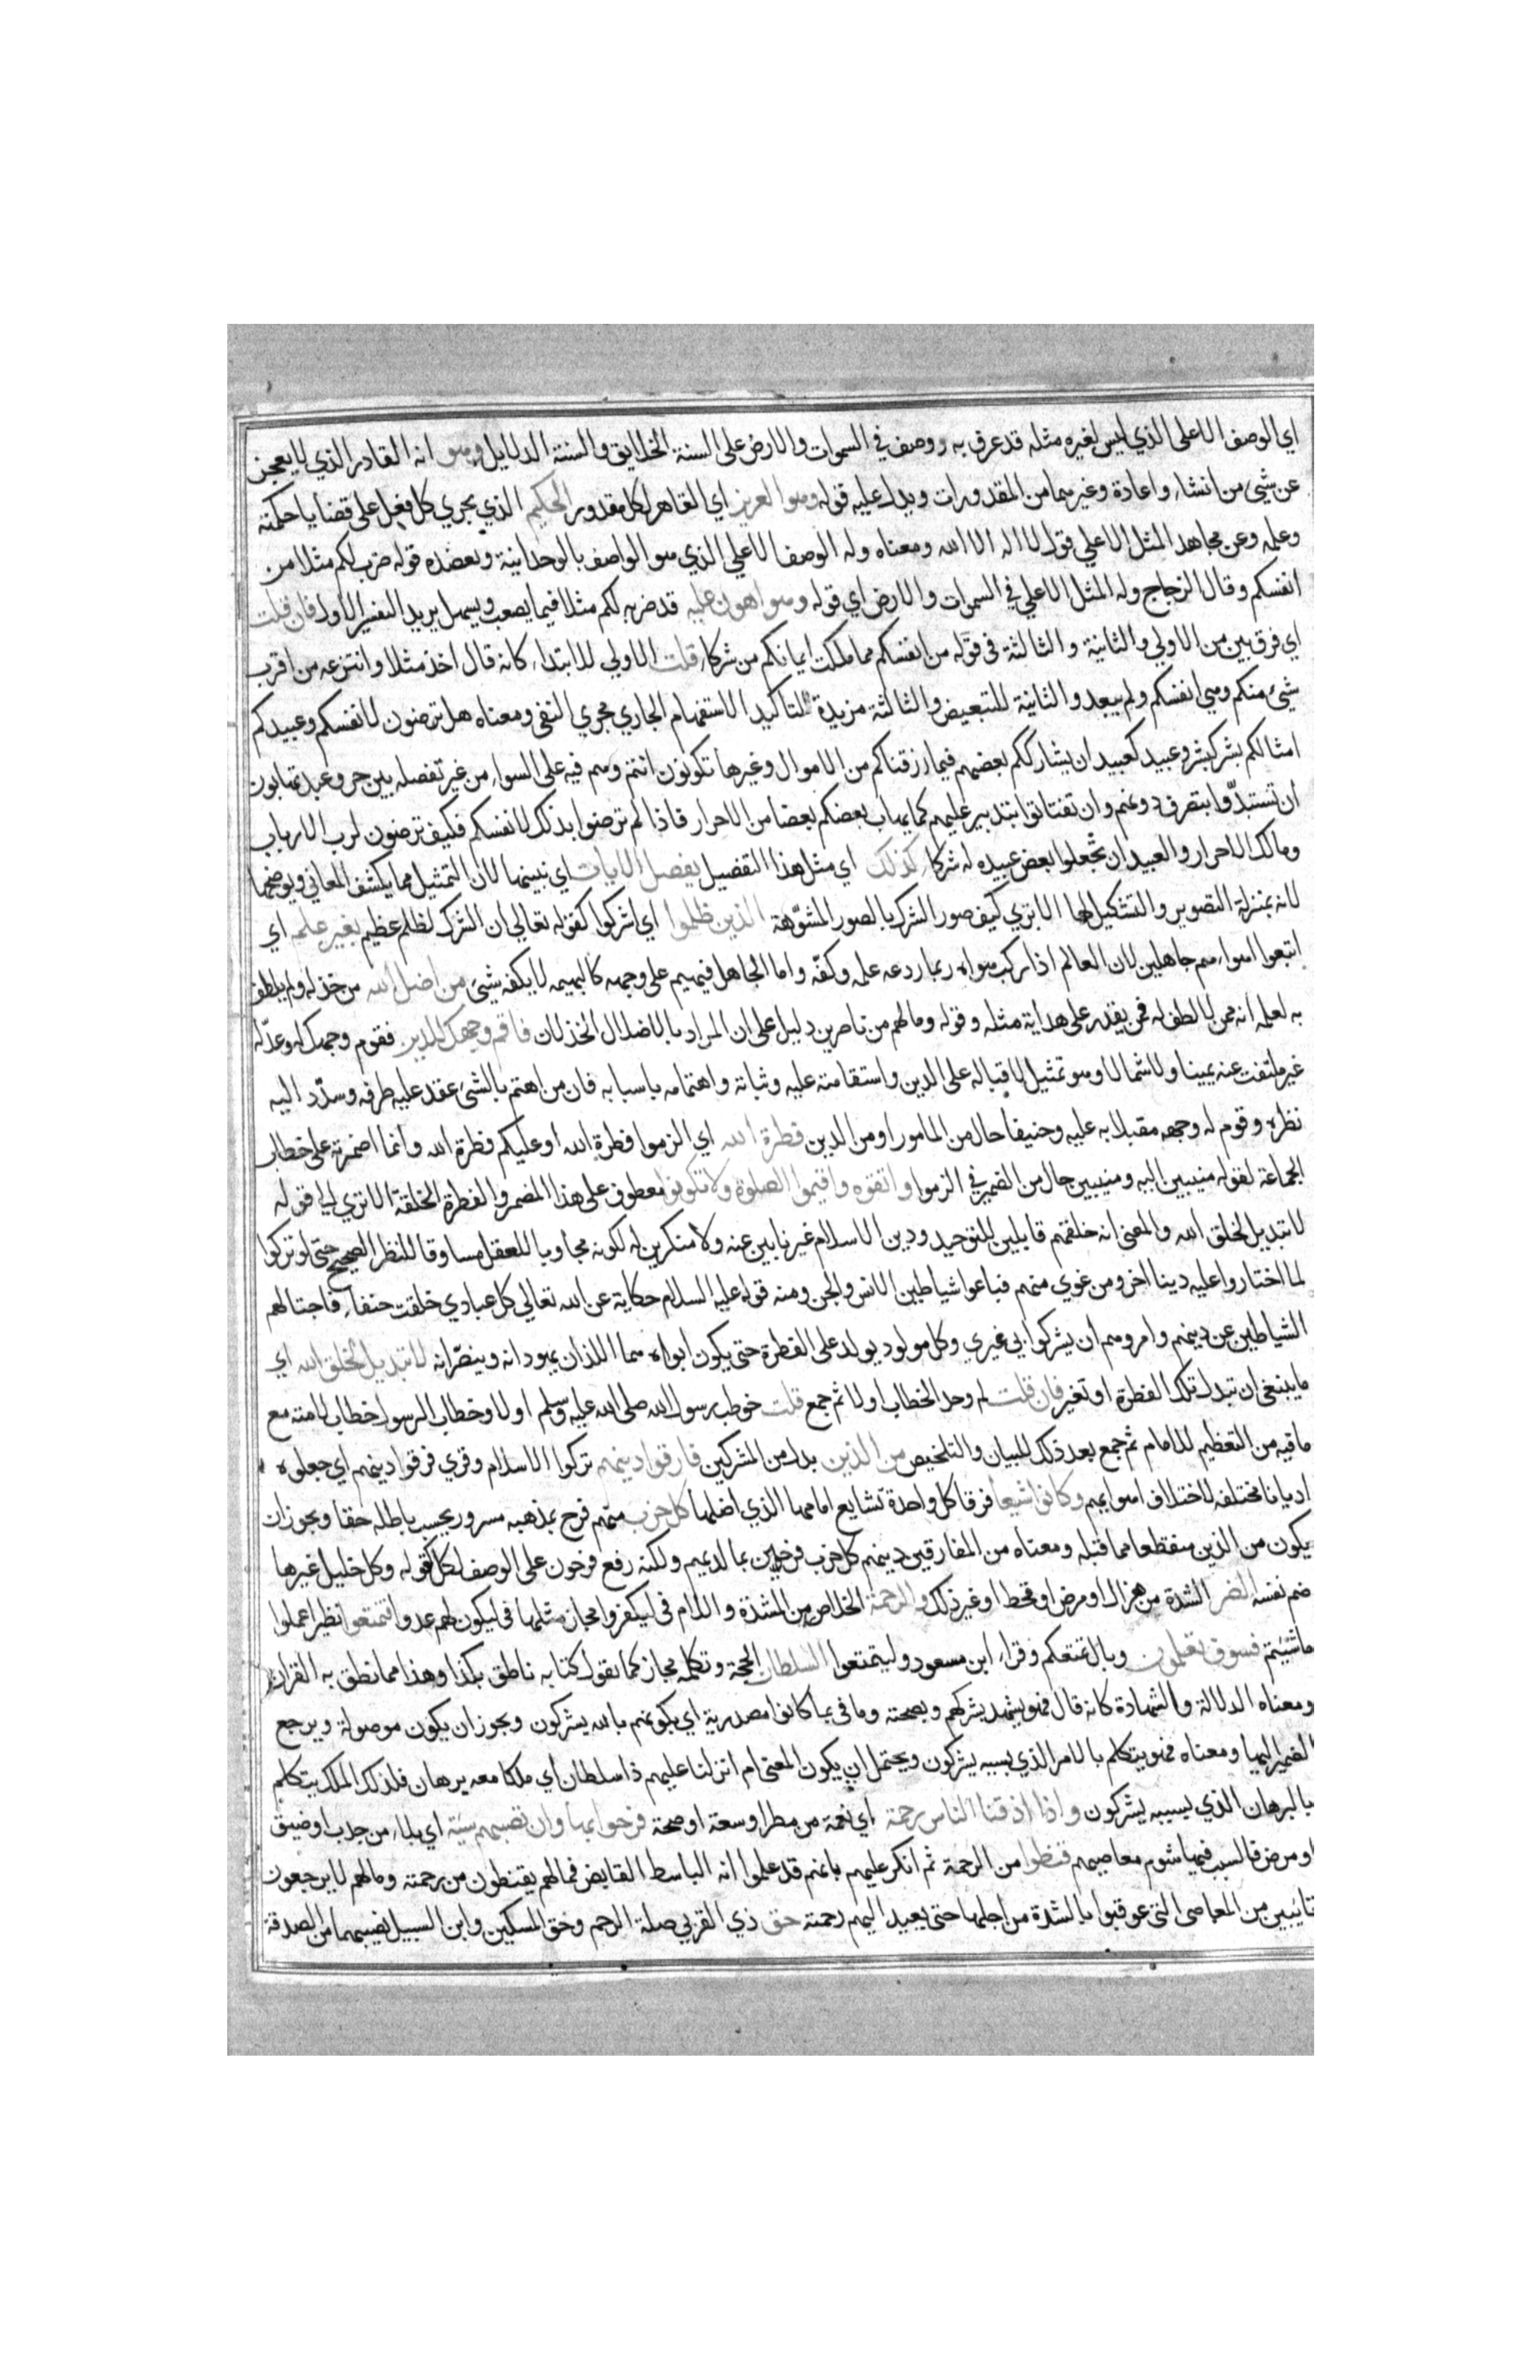 اي الوصف الاعلى الذي ليس لغيره مثله قد عرف به ووصف في السموات والارض على السنة الخلايق والسنة الدلايل وهو انه القادر الذي لا يعجز
عن شيئ من انشاء واعادة وغيرهما من المقدورات ويدل عليه قوله وهو العزيز اي القاهر لكل مقدور الحكيم الذي يجري كل فعل على قضايا حكمته
وعلمه وعن مجاهد المثل الاعلي قول لا اله الا الله ومعناه وله الوصف الاعلي الذي هو الواصف بالوحدانية ويعضده قوله ضرب لكم مثلا من
انفسكم وقال الزجاج وله المثل الاعلي في السموات والارض اي قوله وهو اهون عليه قد ضربه لكم مثلا فيما يصعب ويسهل يريد التفسير الاول فان قلت
اي فرق بين من الاولي والثانية والثالثة في قوله من انفسكم مما ملكت ايمانكم من شركاء قلت الاولي للابتداء كانه قال اخذ مثلا وانتزعه من اقرب
شيئ منكم وهي انفسكم ولم يبعد والثانية للتبعيض والثالثة مزيدة لتاكيد الاستفهام الجاري مجري النفي ومعناه هل ترضون لانفسكم وعبيدكم
امثالكم بشر كبشر وعبيد كعبيد ان يشارككم بعضهم فيما رزقناكم من الاموال وغيرها تكونون انتم وهم فيه على السواء من غير تفصله بين حر وعبد تهابون
ان تستبدّوا بتصرف دونهم وان تفتاتوا بتدبير عليهم كما يهاب بعضكم بعضا من الاحرار فاذا لم ترضوا بذلك لانفسكم فكيف ترضون لرب الارباب
ومالك الاحرار والعبيد ان تجعلوا بعض عبيده له شركاء كذلك اي مثل هذا التفصيل يفصل الايات اي نبينها لان التمثيل مما يكشف المعاني ويوضحها
لانه بمنزلة التصوير والتشكيل لها الا تري كيف صور الشرك بالصور المشوّهة الذين ظلموا اي اشركوا كقوله تعالي ان الشرك لظلم عظيم بغير علم اي
اتبعوا اهواءهم جاهلين لان العالم اذا ركب هواه ربما ردعه علمه وكفّه واما الجاهل فيهيم على وجهه كالبهيمه لا يكفه شيئ من اضل الله من خذله ولم يلطف
به لعلمه انه ممن لا لطف له فمن يقدر على هداية مثله وقوله وما لهم من ناصرين دليل على ان المراد بالاضلال الخذلان فاقم وجهك للدين فقوم وجهك له وعدّله
غير ملتفت عنه يمينا ولا شمالا وهو تمثيل لاقباله على الدين واستقامته عليه وثباته واهتمامه باسبابه فان من اهتم بالشئ عقد عليه طرفه وسدّد اليه
نظره وقوم له وجهه مقبلا به عليه وحنيفا حال من المامور او من الدين فطرة الله اي الزموا فطرة الله او عليكم فطرة الله وانما اضمرته على خطاب
الجماعة لقوله منيبين اليه ومنيبين حال من الضمير في الزموا واتقوه واقيموا الصلوة ولا تكونوا معطوف على هذا المضمر والفطرة الخلقة الا تري الي قوله
لا تبديل لخلق الله والمعني انه خلقهم قابلين للتوحيد ودين الاسلام غير نابين عنه ولا منكرين له لكونه مجاوبا للعقل مساوقا للنظر الصحيح حتى لو تركوا
لما اختاروا عليه دينا اخر ومن غوي منهم فباغوا شياطين الانس والجن ومنه قوله عليه السلام حكاية عن الله تعالي كل عبادي خلقت حنفاء فاجتالهم
الشياطين عن دينهم وامروهم ان يشركوا بي غيري وكل مولود يولد على الفطرة حتى يكون ابواه هما اللذان يهودانه وينصّرانه لا تبديل لخلق الله اي
ما ينبغي ان تبدل تلك الفطرة او تغير فان قلت لم وحد الخطاب اولا ثم جمع قلت خوطب رسول الله صلى الله عليه وسلم اولا وخطاب الرسول خطاب لامته مع
ما فيه من التعظيم للامام ثم جمع بعد ذلك للبيان والتلخيص من الذين بدل من المشركين فارقوا دينهم تركوا الاسلام وقري فرقوا دينهم اي جعلوه
اديانا مختلفه لاختلاف اهوايهم وكانوا شيعا فرقا كل واحدة تشايع امامها الذي اضلها كل حزب منهم فرح بمذهبه مسرور يحسب باطله حقا ويجوز ان
يكون من الذين منقطعا مما قبله ومعناه من المفارقين دينهم كل حزب فرحين بما لديهم ولكنه رفع فرحون على الوصف لكل كقوله وكل خليل غيرها
ضم نفسه الضر الشدة من هزال او مرض او قحط او غير ذلك والرحمة الخلاص من الشدة واللام في ليكفروا مجاز مثلها في ليكون لهم عدوا فتمتعوا نظير اعملوا
ما شئتم فسوف تعلمون وبال تمتعكم وقراء ابن مسعود وليتمتعوا السلطان الحجة وتكلمه مجاز كما تقول كتابه ناطق بكذا وهذا مما نطق به القران
ومعناه الدلالة والشهادة كانه قال فهو يشهد بشركهم وبصحته وما في بما كانوا مصدرية اي بكونهم بالله يشركون ويجوز ان يكون موصولة ويرجع
الضمير اليها ومعناه فهو يتكلم بالامر الذي بسببه يشركون ويحتمل ان يكون المعني ام انزلنا عليهم ذا سلطان اي ملكا معه برهان فلذلك الملك يتكلم
بالبرهان الذي بسببه يشركون واذا اذقنا الناس رحمة اي نعمة من مطر او سعة او صحة فرحوا بها وان تصبهم سيئة اي بلاء من جدب او ضيق
او مرض فالسبب فيها شوم معاصيهم قنطوا من الرحمة ثم انكر عليهم بانهم قد علموا انه الباسط القابض فما لهم يقنطون من رحمته وما لهم لا يرجعون
تايبين من المعاصي التي عوقبوا بالشدة من اجلها حتى يعيد اليهم رحمته حق ذي القربي صلة الرحم وحق المسكين وابن السبيل نصيبهما من الصدقة